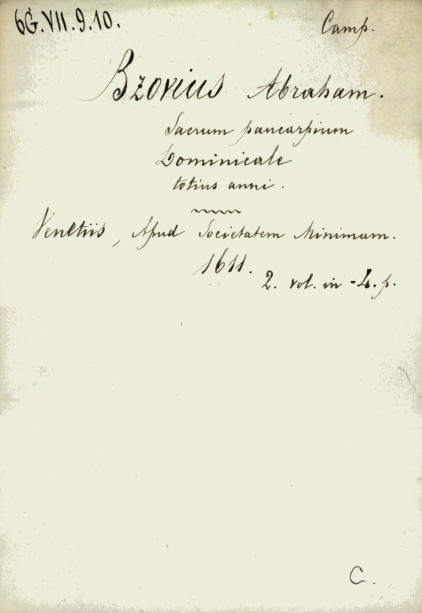 6G.VII.9.10.
Camp.
Bzovius Abraham.
Sacrum pancarpium
Dominicale
totius anni.
Venetiis, Apud Societatem Minimam.
1611.
2. vol. in -4. p.
C.